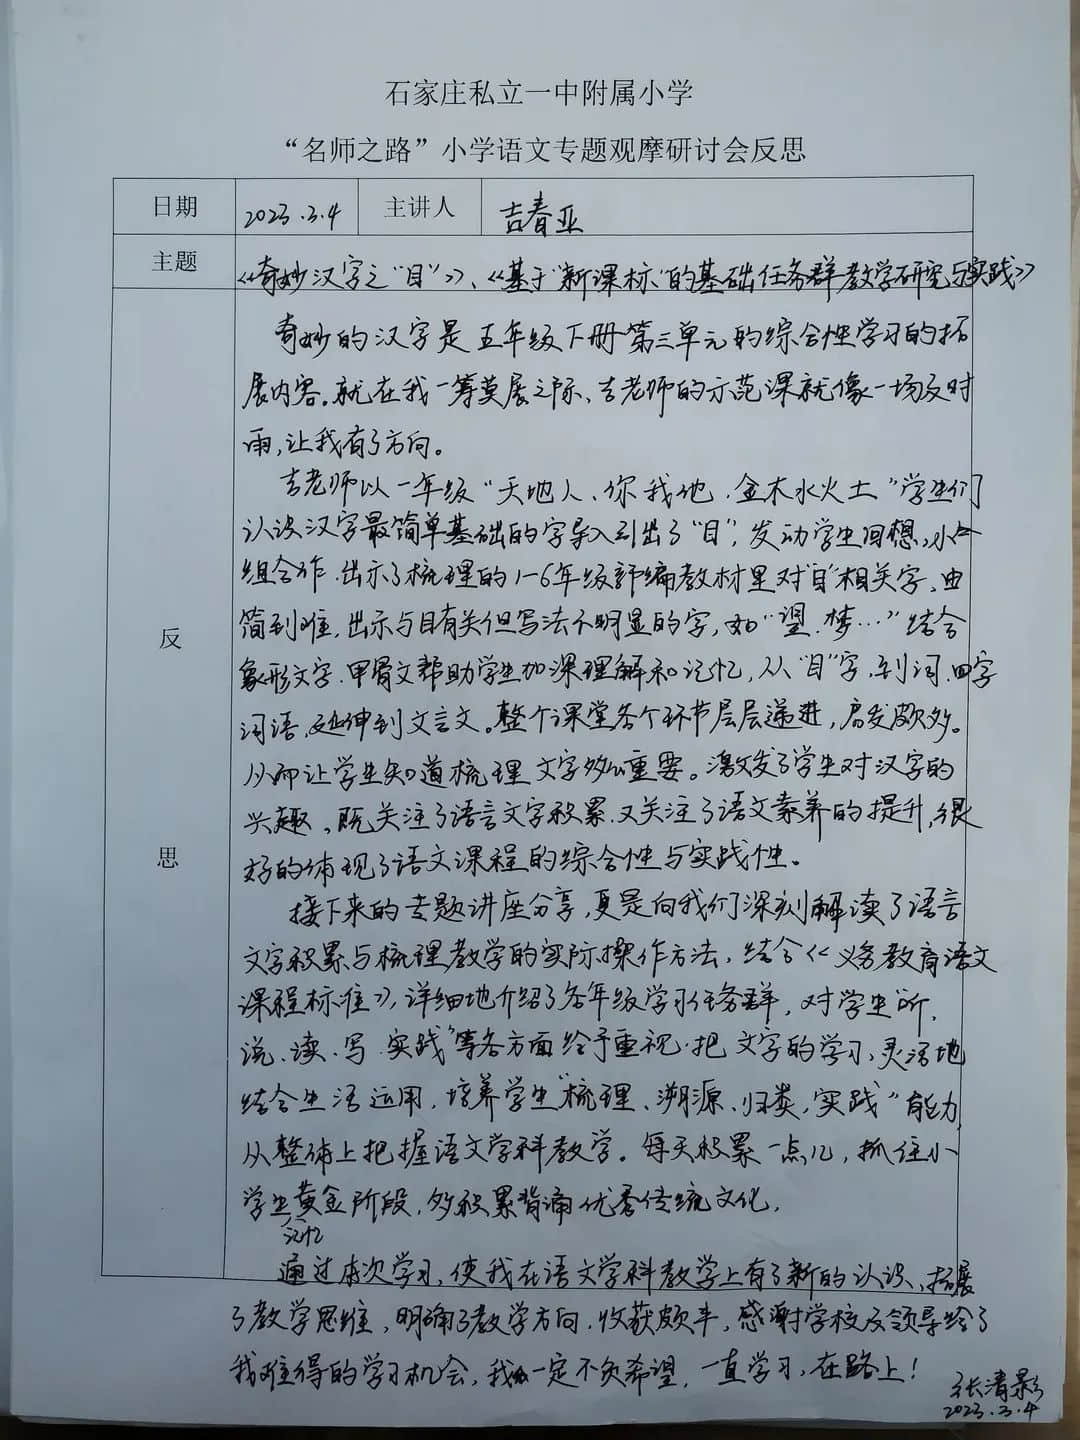 石家庄私立一中附属小学
“名师之路”小学语文专题观摩研讨会反思
日期 2023.3.4 主讲人 吉春亚
主题 《奇妙汉字之“目”》、《基于“新课标”的基础任务群教学研究与实践》
反思
奇妙的汉字是五年级下册第三单元的综合性学习的拓
展内容。就在我一筹莫展之际、吉老师的示范课就像一场及时
雨,让我有了方向。
吉老师以一年级“天地人、你我他、金木水火土”学生们
认识汉字最简单基础的字导入引出了“目”,发动学生回想,小
组合作.出示了梳理的1-6年级部编教材里对“目”相关字、由
简到难,出示与目有关但写法不明显的字,如“望、梦…”结合
象形文字、甲骨文帮助学生加深理解和记忆,从“目”字,到词、四字
词语,延伸到文言文。整个课堂各个环节层层递进,启发颇多。
从而让学生知道梳理文字多么重要。激发了学生对汉字的
兴趣、既关注了语言文字积累、又关注了语文素养的提升,很
好的体现了语文课程的综合性与实践性。
接下来的专题讲座分享,更是向我们深刻解读了语言
文字积累与梳理教学的实际操作方法,结合《义务教育语文
课程标准》,详细地介绍了各年级学习任务群,对学生“听、
说、读、写、实践”等各方面给予重视.把文字的学习,灵活地
结合生活运用,培养学生“梳理、溯源、归类,实践”能力,
从整体上把握语文学科教学。每天积累一点儿,抓住小
学生黄金阶段,多积累背诵优秀传统文化,
记忆
通过本次学习,使我在语文学科教学上有了新的认识、拓展
了教学思维,明确了教学方向、收获颇丰,感谢学校及领导给了
我难得的学习机会,我一定不负希望,一直学习,在路上!
张清影
2023.3.4